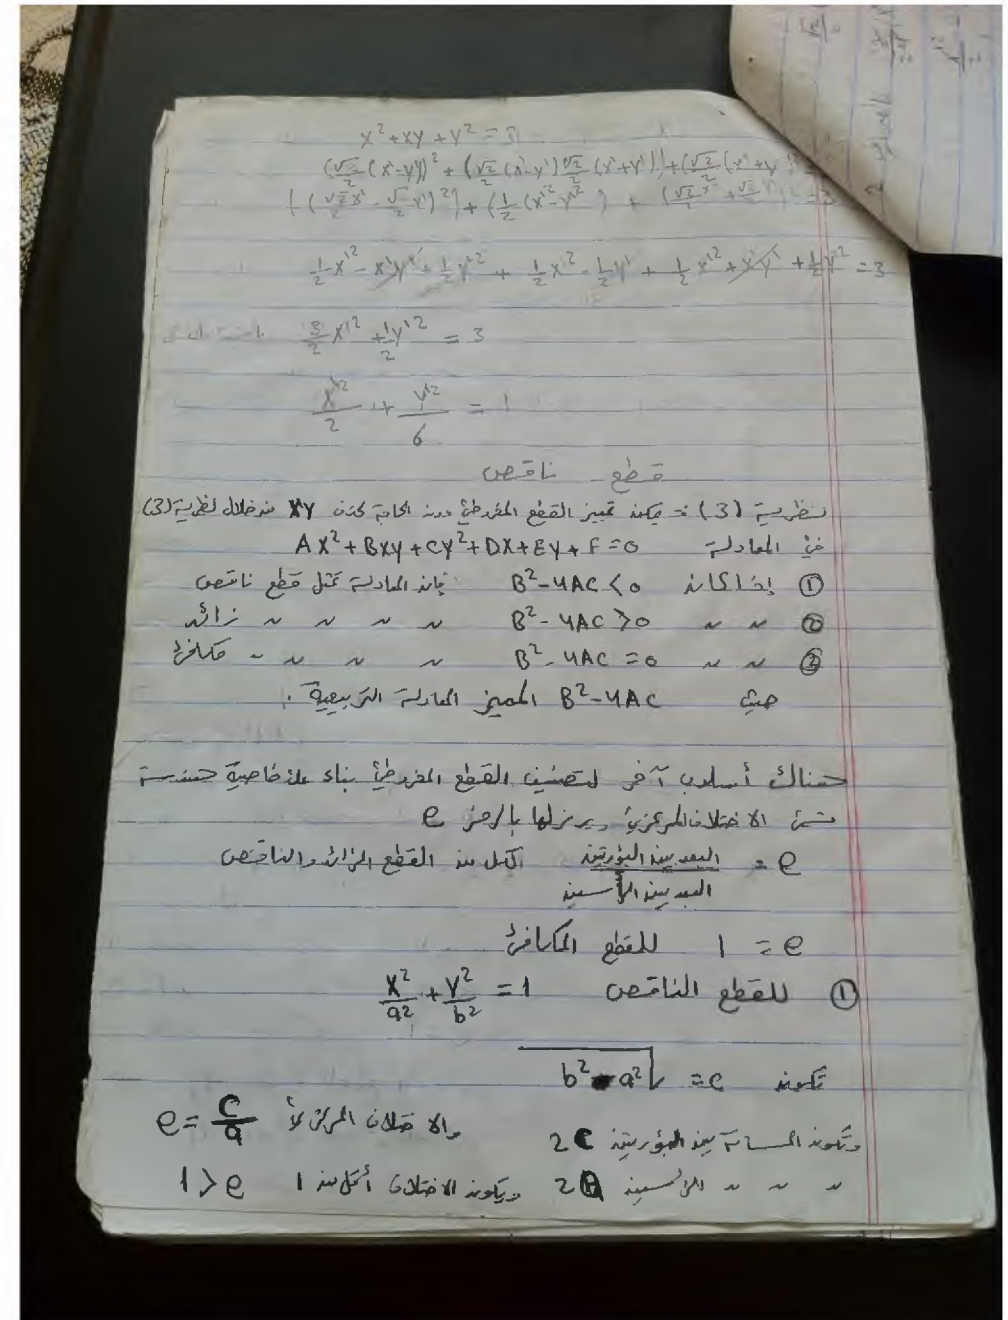 x² + xy + y² = 3
(√2/2 (x' - y'))² + (√2/2 (x' - y') √2/2 (x' + y')) + (√2/2 (x' + y'
(√2/2 x' - √2/2 y')²) + (1/2 (x'² - y'²)) + (√2/2 x' + √2/2 y')² = 3
1/2 x'² - x'y' + 1/2 y'² + 1/2 x'² - 1/2 y' + 1/2 x'² + x'y' + 1/2 y'² = 3
3/2 x'² + 1/2 y'² = 3
x'²/2 + y'²/6 = 1
قطع ناقص
نظرية (3) : يمكن تمييز القطع المخروطي دون الحاجة لحذف xy من خلال نظرية (3)
في المعادلة Ax² + Bxy + Cy² + Dx + Ey + F = 0
① إذا كان B² - 4AC < 0 فإن المعادلة تمثل قطع ناقص
② " " B² - 4AC > 0 " " " " زائد
③ " " B² - 4AC = 0 " " " " مكافئ
حيث B² - 4AC المميز المعادلة التربيعية .
هناك أسلوب آخر لتصنيف القطع المخروطي بناء على خاصية هندسية
تسمى الاختلاف المركزي ويرمز لها بالرمز e
e = البعد بين البؤرتين / البعد بين الرأسين لكل من القطع الزائد والناقص
e = 1 للقطع المكافئ
① للقطع الناقص x²/a² + y²/b² = 1
تكون c = √a² - b²
وتكون المسافة بين البؤرتين 2c والاختلاف المركزي e = c/a
" " " الرأسين 2a ويكون الاختلاف أقل من 1 1 > e